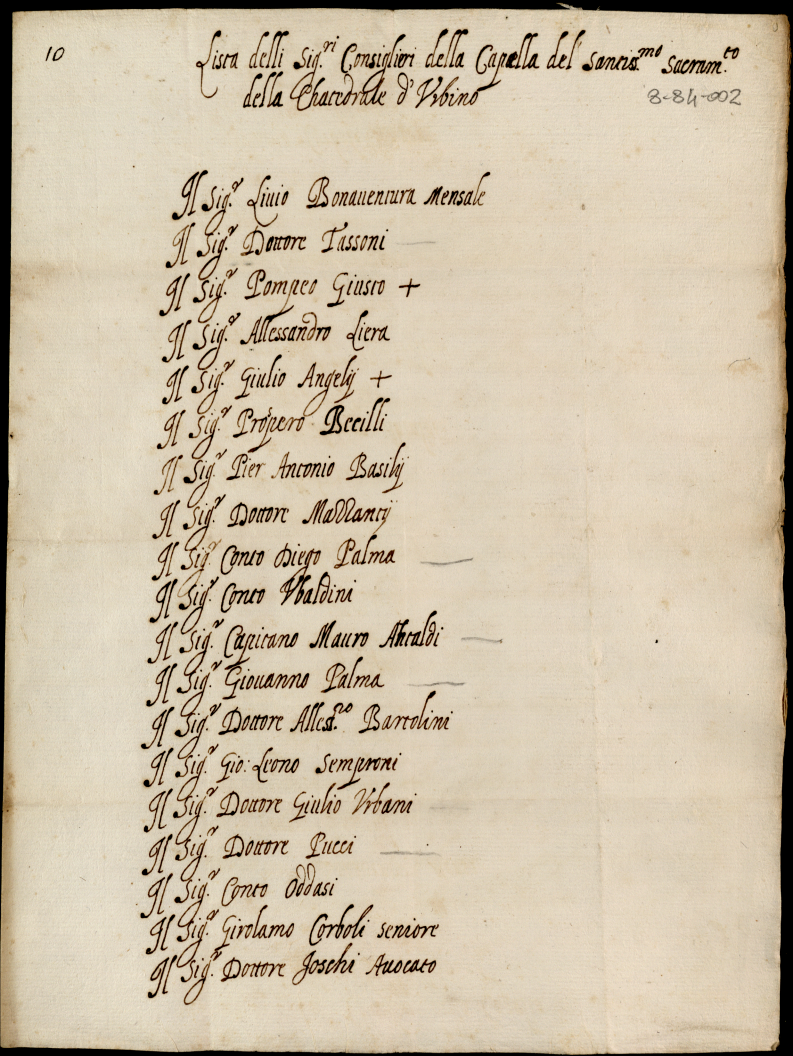 10
Lista delli Sig.ri Consiglieri della Capella del Santis.mo Sacram.to
della Chatedrale d'Vrbino
8-84-002
Il Sig.r Liuio Bonauentura Mensale
Il Sig.r Dottore Tassoni
Il Sig.r Pompeo Giusto +
Il Sig.r Allessandro Liera
Il Sig.r Giulio Angelij +
Il Sig.r Prospero Becilli
Il Sig.r Pier Antonio Basilij
Il Sig.r Dottore Mazzantij
Il Sig.r Conto Diego Palma
Il Sig.r Conto Vbaldini
Il Sig.r Capitano Mauro
Il Sig.r Giouanno Palma
Il Sig.r Dottore Alless.ro Bartolini
Il Sig.r Gio: Leono Semproni
Il Sig.r Dottore Giulio Vrbani
Il Sig.r Dottore Pucci
Il Sig.r Conto Oddasi
Il Sig.r Girolamo Corboli seniore
Il Sig.r Dottore Joschi Auocato